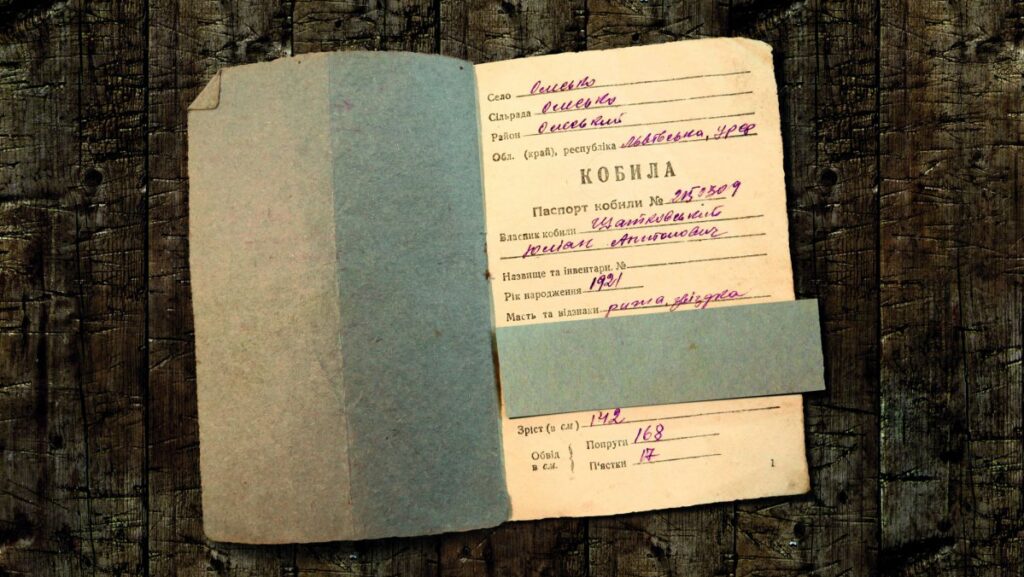 Село Олесько
Сільрада Олесько
Район Олеський
Обл. (край), республіка Львівська, УРСР
КОБИЛА
Паспорт кобили №
Власник кобили Щатковський
Юліан Антонович
Назвище та інвентарн. №
Рік народження 1921
Масть та відзнаки рижа, звіздка
Зріст (в см) 142
Обвід в см. } Попруги 168
П'ястки 17
1